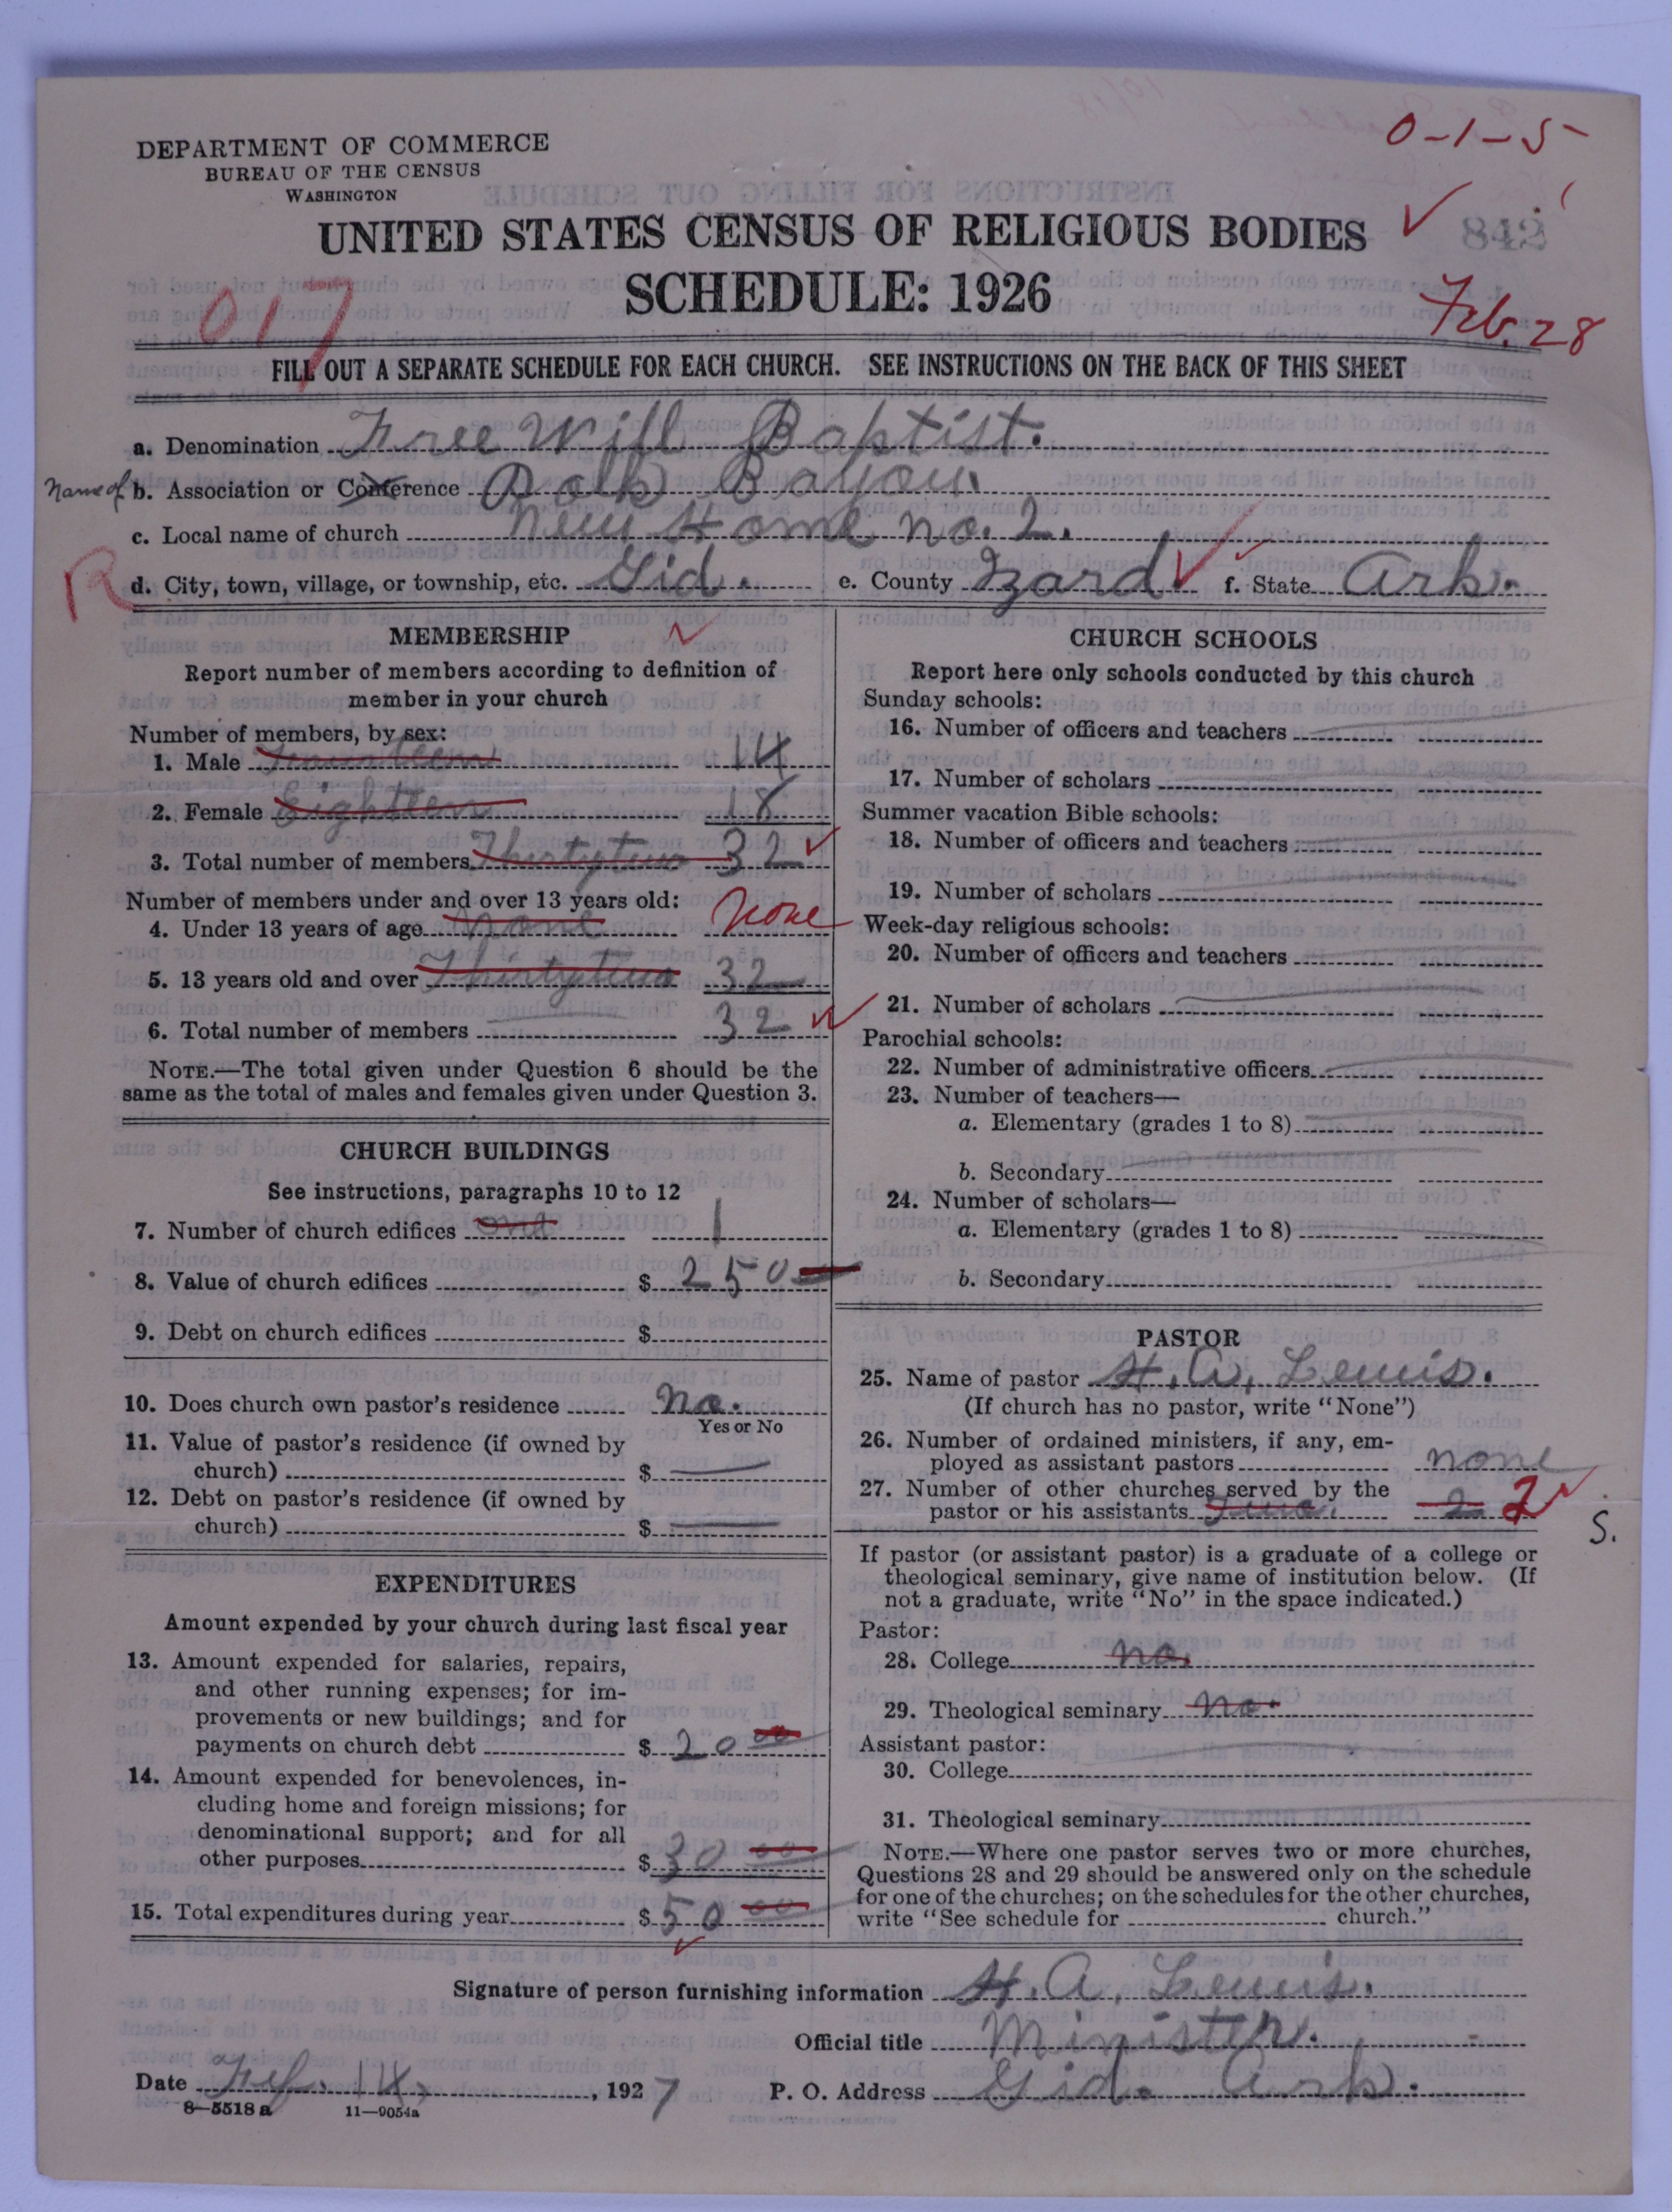 0-1-5
DEPARTMENT OF COMMERCE
BUREAU OF THE CENSUS
WASHINGTON
UNITED STATES CENSUS OF RELIGIOUS BODIES
842
SCHEDULE: 1926
017
Feb. 28
FILL OUT A SEPARATE SCHEDULE FOR EACH CHURCH. SEE INSTRUCTIONS ON THE BACK OF THIS SHEET
a. Denomination Free Will Baptist.
Name of b. Association or Conference Polk Bayou.
c. Local name of church New Home no. 2.
R d. City, town, village, or township, etc. Gid. e. County Izard f. State Ark.
MEMBERSHIP
Report number of members according to definition of
member in your church
Number of members, by sex:
1. Male 14
2. Female Eighteen 18
3. Total number of members Thirtytwo 32
Number of members under and over 13 years old:
4. Under 13 years of age none None
5. 13 years old and over Thirtytwo 32
6. Total number of members 32
NOTE.—The total given under Question 6 should be the
same as the total of males and females given under Question 3.
CHURCH BUILDINGS
See instructions, paragraphs 10 to 12
7. Number of church edifices one 1
8. Value of church edifices $ 250
9. Debt on church edifices $
10. Does church own pastor's residence no.
Yes or No
11. Value of pastor's residence (if owned by
church) $
12. Debt on pastor's residence (if owned by
church) $
EXPENDITURES
Amount expended by your church during last fiscal year
13. Amount expended for salaries, repairs,
and other running expenses; for im-
provements or new buildings; and for
payments on church debt $ 20 00
14. Amount expended for benevolences, in-
cluding home and foreign missions; for
denominational support; and for all
other purposes $ 30 00
15. Total expenditures during year $ 50 00
CHURCH SCHOOLS
Report here only schools conducted by this church
Sunday schools:
16. Number of officers and teachers
17. Number of scholars
Summer vacation Bible schools:
18. Number of officers and teachers
19. Number of scholars
Week-day religious schools:
20. Number of officers and teachers
21. Number of scholars
Parochial schools:
22. Number of administrative officers
23. Number of teachers—
a. Elementary (grades 1 to 8)
b. Secondary
24. Number of scholars—
a. Elementary (grades 1 to 8)
b. Secondary
PASTOR
25. Name of pastor H. A. Lewis.
(If church has no pastor, write "None")
26. Number of ordained ministers, if any, em-
ployed as assistant pastors none
27. Number of other churches served by the
pastor or his assistants two. 2 2
S.
If pastor (or assistant pastor) is a graduate of a college or
theological seminary, give name of institution below. (If
not a graduate, write "No" in the space indicated.)
Pastor:
28. College no.
29. Theological seminary no.
Assistant pastor:
30. College
31. Theological seminary
NOTE.—Where one pastor serves two or more churches,
Questions 28 and 29 should be answered only on the schedule
for one of the churches; on the schedules for the other churches,
write "See schedule for church."
Signature of person furnishing information H. A. Lewis.
Official title Minister.
Date Feb. 14, 1927 P. O. Address Gid. Ark.
8—5518 a 11—9054a